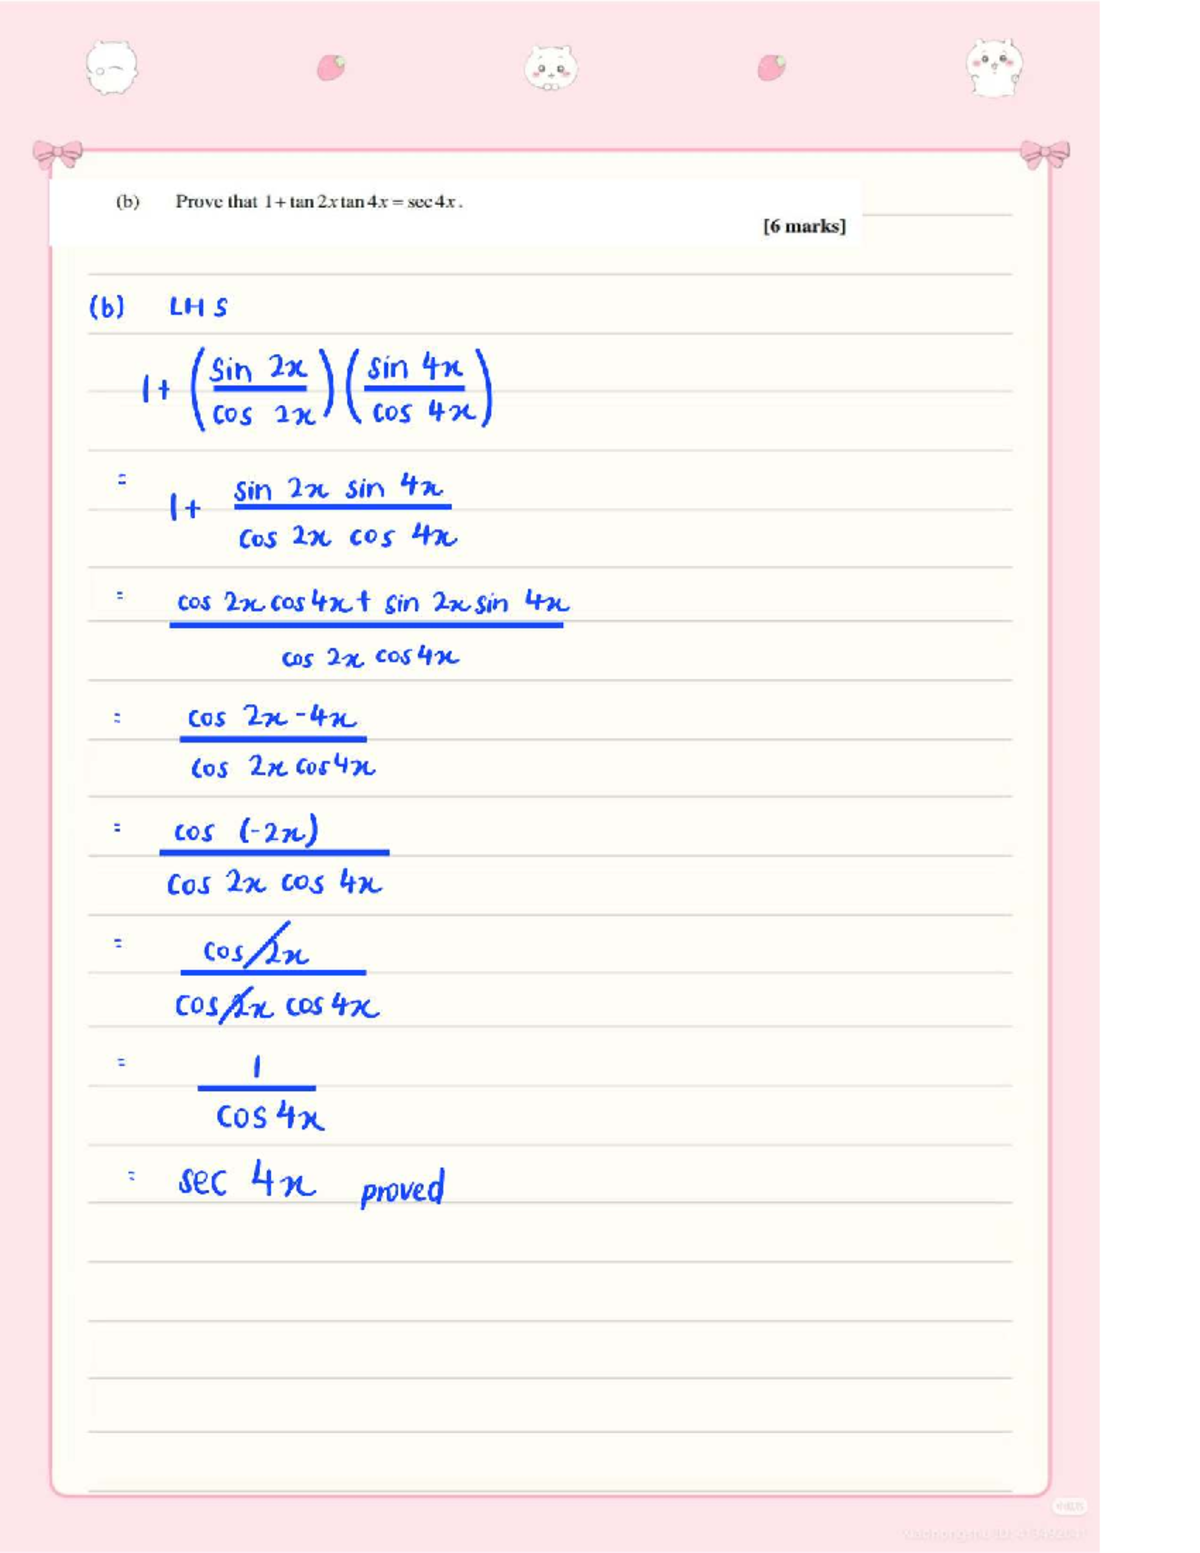 (b) Prove that 1 + tan 2x tan 4x = sec 4x.
[6 marks]
(b) LHS
1 + (sin 2x / cos 2x) (sin 4x / cos 4x)
= 1 + sin 2x sin 4x / cos 2x cos 4x
= cos 2x cos 4x + sin 2x sin 4x / cos 2x cos 4x
= cos 2x - 4x / cos 2x cos 4x
= cos (-2x) / cos 2x cos 4x
= cos 2x / cos 2x cos 4x
= 1 / cos 4x
= sec 4x proved
小红书